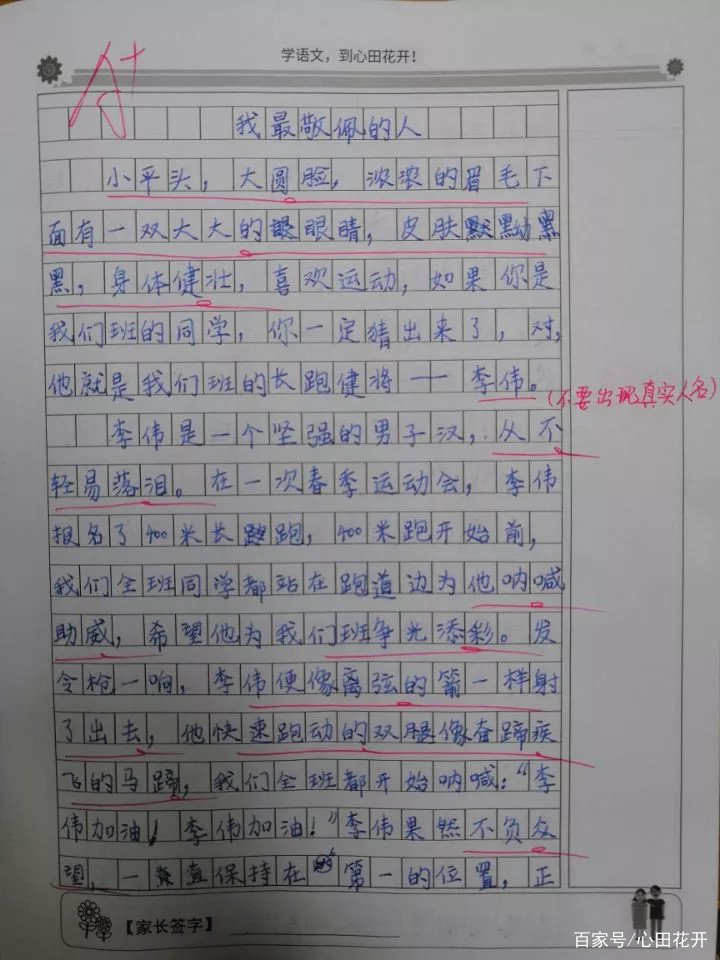 学语文，到心田花开！
A+
我最敬佩的人
小平头，大圆脸，浓浓的眉毛下
面有一双大大的眼睛，皮肤黝黑
黑，身体健壮，喜欢运动，如果你是
我们班的同学，你一定猜出来了，对，
他就是我们班的长跑健将——李伟。
(不要出现真实人名)
李伟是一个坚强的男子汉，从不
轻易落泪。在一次春季运动会，李伟
报名了400米长跑，400米跑开始前，
我们全班同学都站在跑道边为他呐喊
助威，希望他为我们班争光添彩。发
令枪一响，李伟便像离弦的箭一样射
了出去，他快速跑动的双腿像奋蹄疾
飞的马蹄，我们全班都开始呐喊："李
伟加油！李伟加油！"李伟果然不负众
望，一直保持在第一的位置，正
【家长签字】
百家号/心田花开